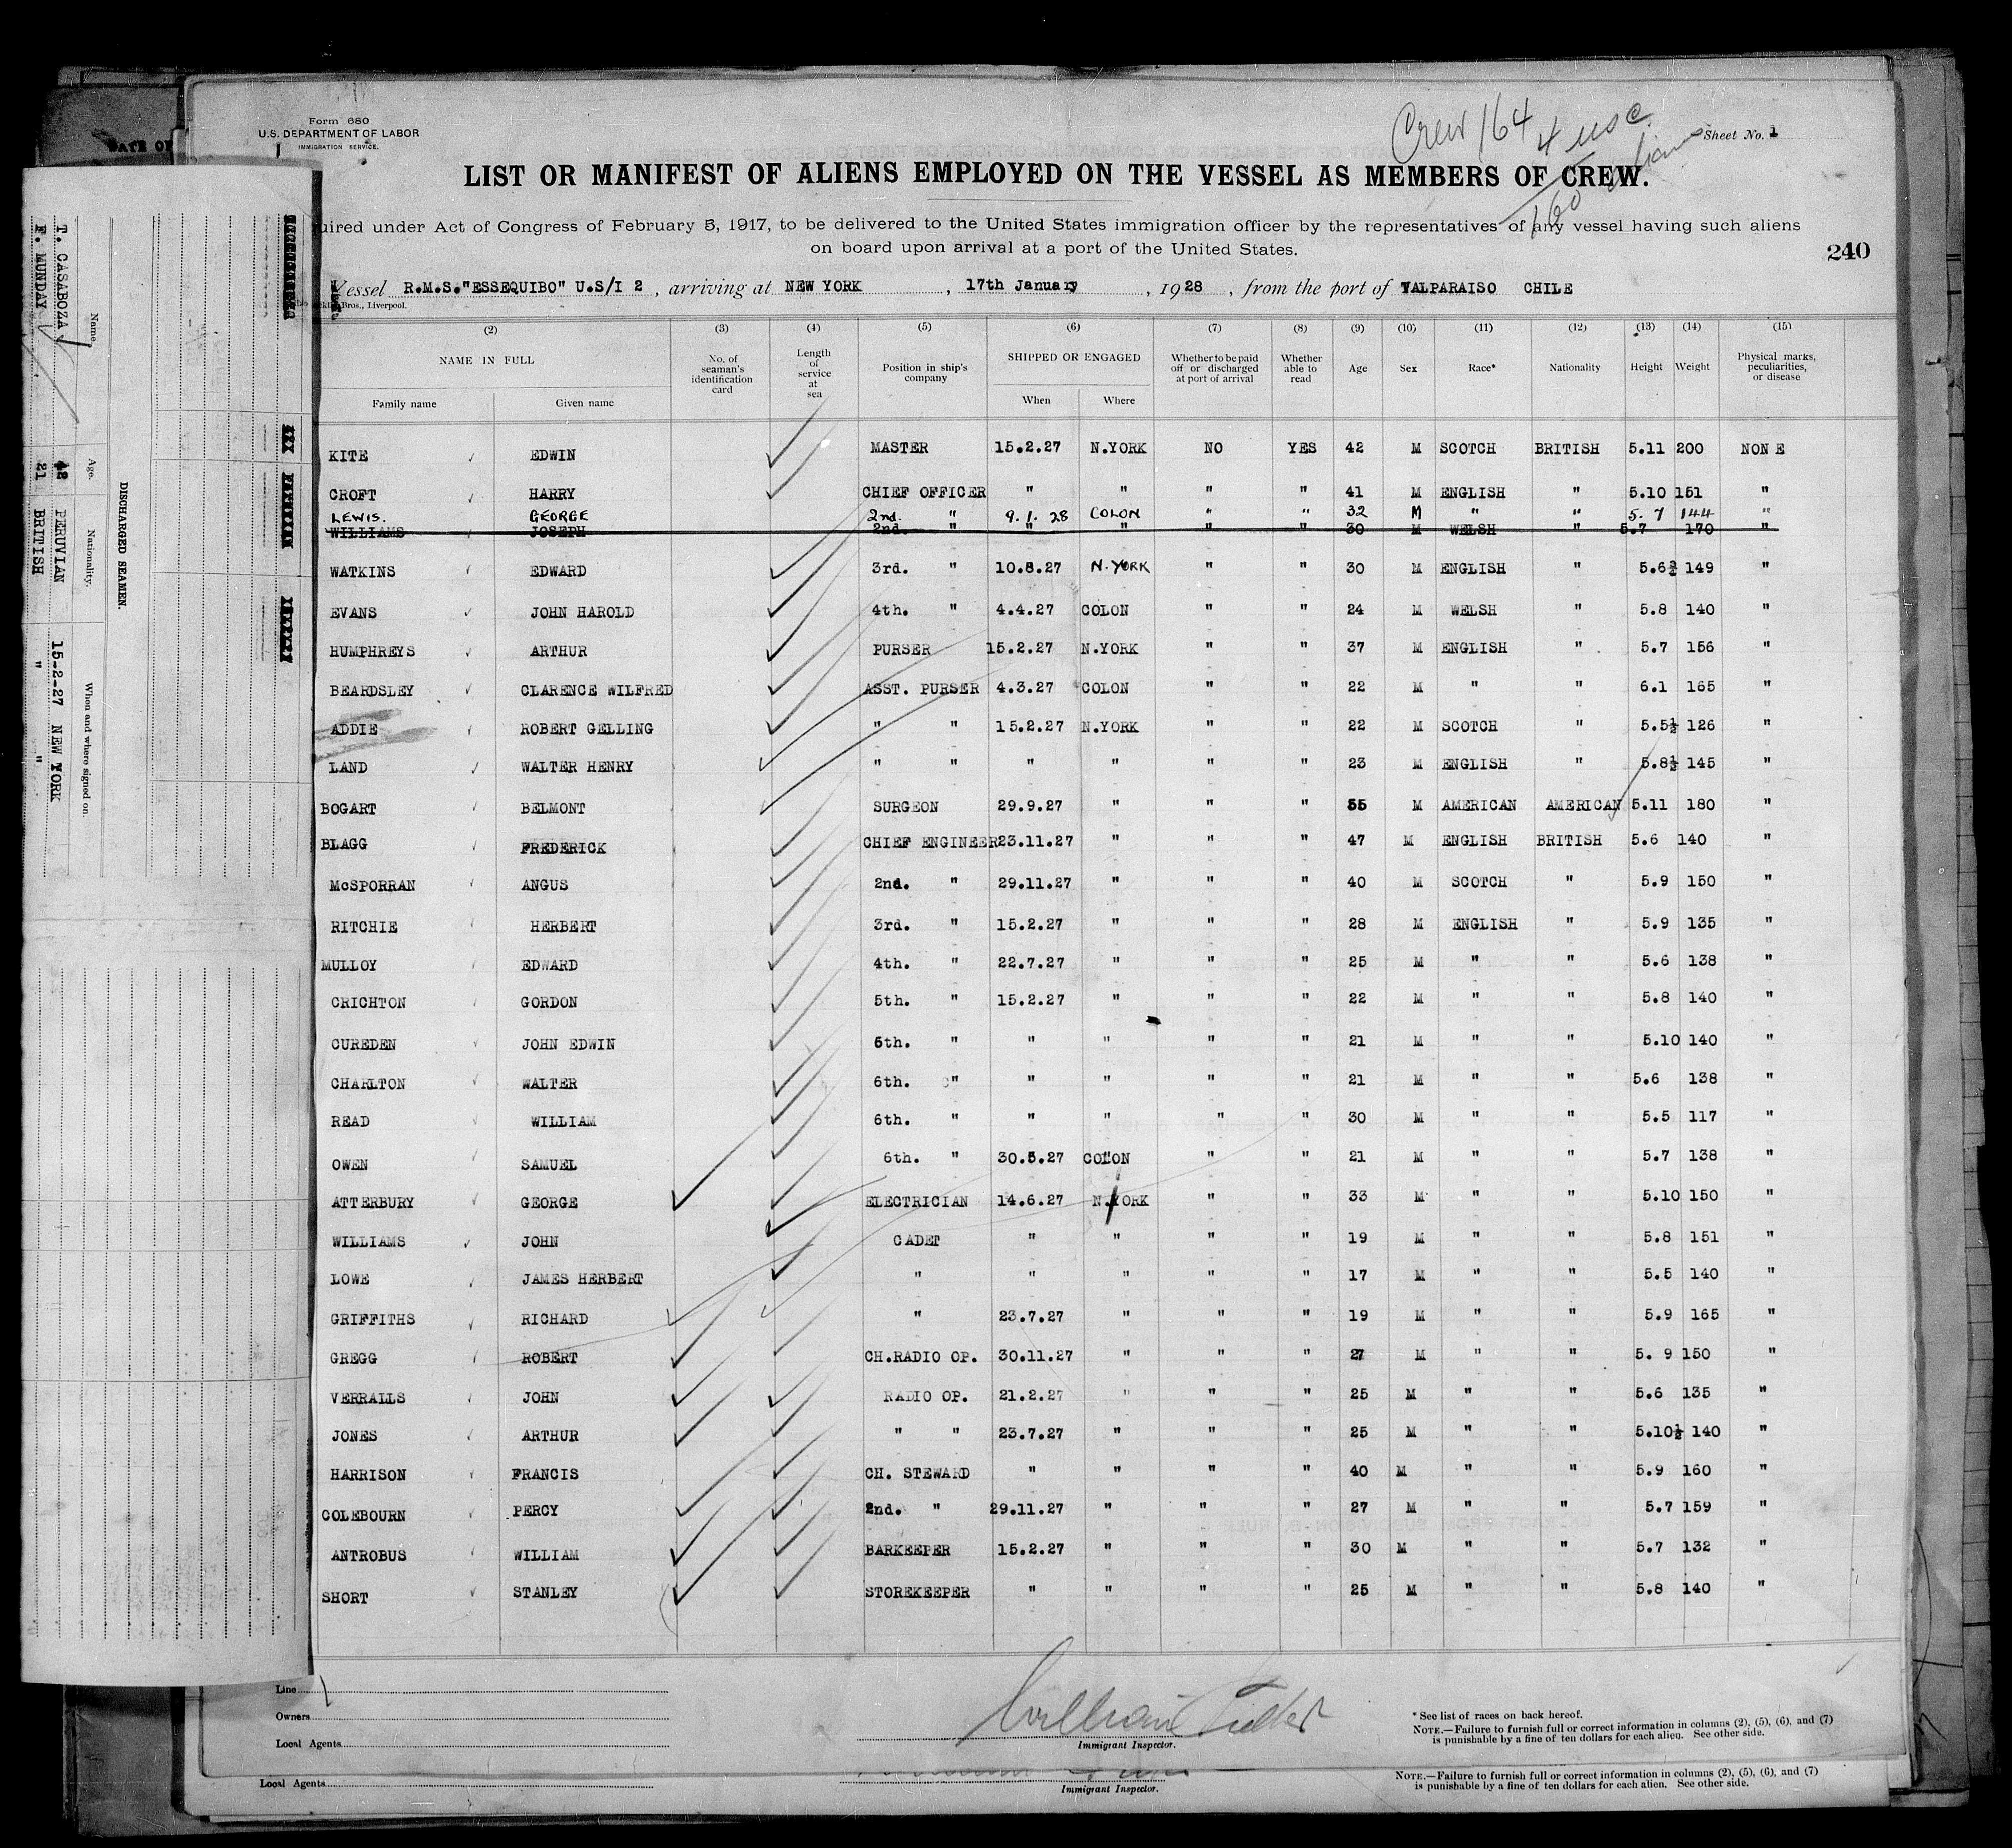 Form 680
U.S. DEPARTMENT OF LABOR
IMMIGRATION SERVICE.
Crew 164
4 usc
160
Sheet No. 1
LIST OR MANIFEST OF ALIENS EMPLOYED ON THE VESSEL AS MEMBERS OF CREW.
uired under Act of Congress of February 5, 1917, to be delivered to the United States immigration officer by the representatives of any vessel having such aliens
on board upon arrival at a port of the United States.
240
Vessel R.M.S. "ESSEQUIBO" U.S/I 2 , arriving at NEW YORK , 17th January , 1928 , from the port of VALPARAISO CHILE
Bros., Liverpool.
(2) (3) (4) (5) (6) (7) (8) (9) (10) (11) (12) (13) (14) (15)
NAME IN FULL No. of seaman's identification card Length of service at sea Position in ship's company SHIPPED OR ENGAGED Whether to be paid off or discharged at port of arrival Whether able to read Age Sex Race* Nationality Height Weight Physical marks, peculiarities, or disease
Family name Given name When Where
KITE EDWIN MASTER 15.2.27 N.YORK NO YES 42 M SCOTCH BRITISH 5.11 200 NONE
CROFT HARRY CHIEF OFFICER " " " " 41 M ENGLISH " 5.10 151 "
LEWIS. GEORGE 2nd. " 9.1.28 COLON " " 32 M " " 5.7 144 "
WILLIAMS JOSEPH 2nd. " " " " " 30 M WELSH " 5.7 170 "
WATKINS EDWARD 3rd. " 10.8.27 N.YORK " " 30 M ENGLISH " 5.6½ 149 "
EVANS JOHN HAROLD 4th. " 4.4.27 COLON " " 24 M WELSH " 5.8 140 "
HUMPHREYS ARTHUR PURSER 15.2.27 N.YORK " " 37 M ENGLISH " 5.7 156 "
BEARDSLEY CLARENCE WILFRED ASST. PURSER 4.3.27 COLON " " 22 M " " 6.1 165 "
ADDIE ROBERT GELLING " " 15.2.27 N.YORK " " 22 M SCOTCH " 5.5½ 126 "
LAND WALTER HENRY " " " " " " 23 M ENGLISH " 5.8½ 145 "
BOGART BELMONT SURGEON 29.9.27 " " " 55 M AMERICAN AMERICAN 5.11 180 "
BLAGG FREDERICK CHIEF ENGINEER 23.11.27 " " " 47 M ENGLISH BRITISH 5.6 140 "
McSPORRAN ANGUS 2nd. " 29.11.27 " " " 40 M SCOTCH " 5.9 150 "
RITCHIE HERBERT 3rd. " 15.2.27 " " " 28 M ENGLISH " 5.9 135 "
MULLOY EDWARD 4th. " 22.7.27 " " " 25 M " " 5.6 138 "
CRICHTON GORDON 5th. " 15.2.27 " " " 22 M " " 5.8 140 "
CUREDEN JOHN EDWIN 6th. " " " " " 21 M " " 5.10 140 "
CHARLTON WALTER 6th. " " " " " 21 M " " 5.6 138 "
READ WILLIAM 6th. " " " " " 30 M " " 5.5 117 "
OWEN SAMUEL 6th. " 30.5.27 COLON " " 21 M " " 5.7 138 "
ATTERBURY GEORGE ELECTRICIAN 14.6.27 N.YORK " " 33 M " " 5.10 150 "
WILLIAMS JOHN CADET " " " " 19 M " " 5.8 151 "
LOWE JAMES HERBERT " " " " " 17 M " " 5.5 140 "
GRIFFITHS RICHARD " 23.7.27 " " " 19 M " " 5.9 165 "
GREGG ROBERT CH.RADIO OP. 30.11.27 " " " 27 M " " 5.9 150 "
VERRALLS JOHN RADIO OP. 21.2.27 " " " 25 M " " 5.6 135 "
JONES ARTHUR " " 23.7.27 " " " 25 M " " 5.10½ 140 "
HARRISON FRANCIS CH. STEWARD " " " " 40 M " " 5.9 160 "
COLEBOURN PERCY 2nd. " 29.11.27 " " " 27 M " " 5.7 159 "
ANTROBUS WILLIAM BARKEEPER 15.2.27 " " " 30 M " " 5.7 132 "
SHORT STANLEY STOREKEEPER " " " " 25 M " " 5.8 140 "
Line
Owners
Local Agents
William
Immigrant Inspector.
* See list of races on back hereof.
NOTE.—Failure to furnish full or correct information in columns (2), (5), (6), and (7)
is punishable by a fine of ten dollars for each alien. See other side.
Local Agents
Immigrant Inspector.
NOTE.—Failure to furnish full or correct information in columns (2), (5), (6), and (7)
is punishable by a fine of ten dollars for each alien. See other side.
DATE OF
DISCHARGED SEAMEN.
Name. Age. Nationality. When and where signed on.
T. CASABOZA 42 PERUVIAN 15-2-27 NEW YORK
F. MUNDAY 21 BRITISH " "